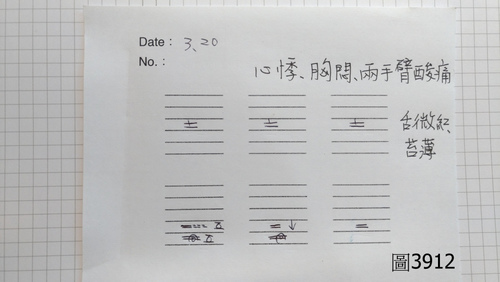 Date : 3、20
No. :
心悸、胸悶、兩手臂酸痛
舌微紅
苔薄
圖3912